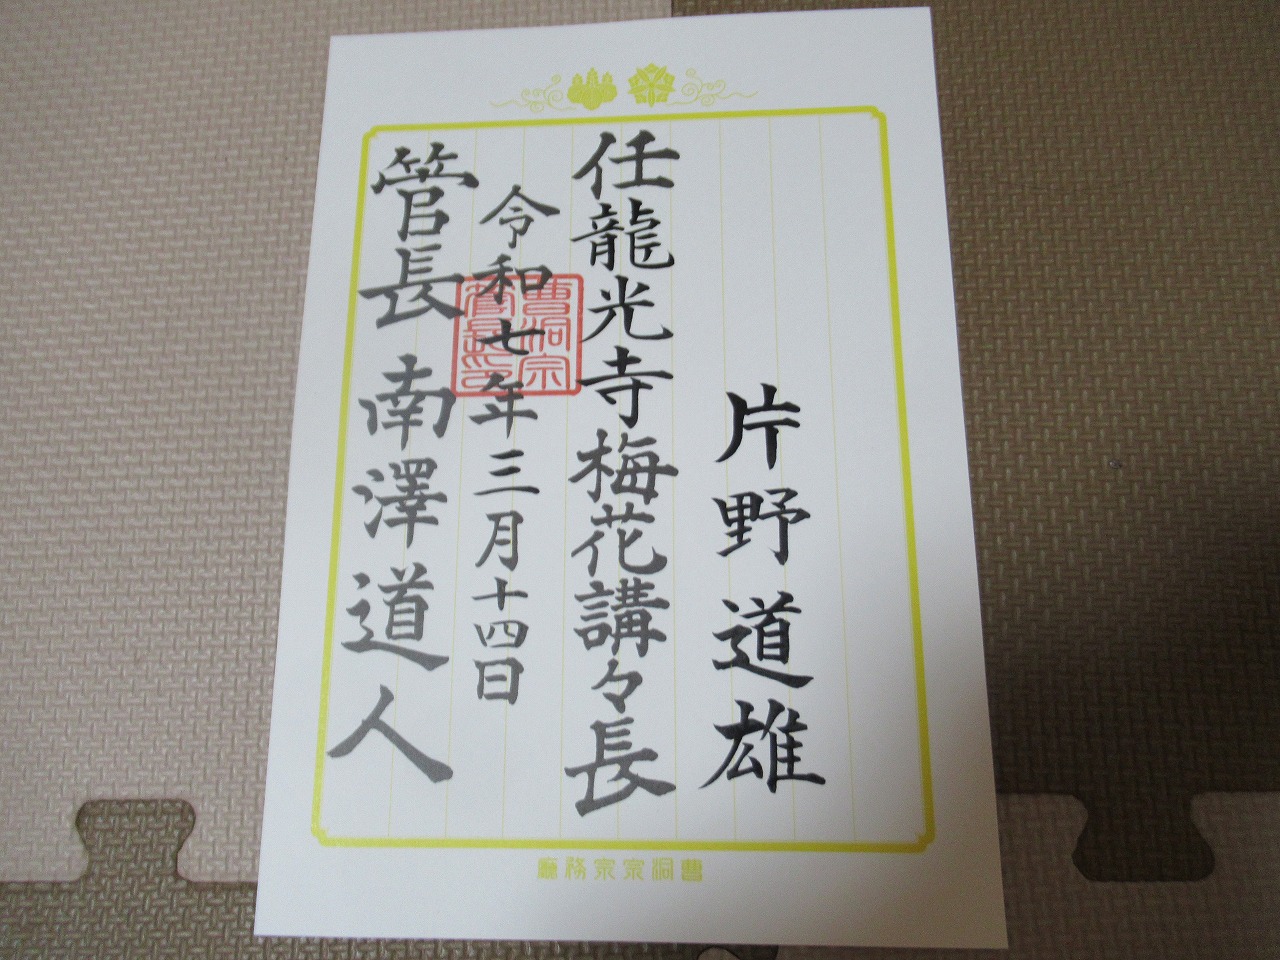 片野道雄
任龍光寺梅花講々長
令和七年三月十四日
管長 南澤道人
曹洞宗
管長印
廳務宗宗洞曹